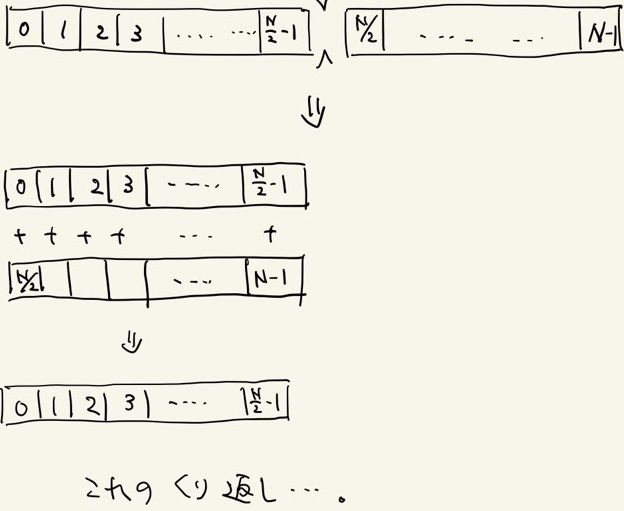 0 1 2 3 ..... .... N/2-1 N/2 .... ... N-1
⇓
0 1 2 3 ----. N/2-1
+ + + + ... +
N/2 .... N-1
⇓
0 1 2 3 .... N/2-1
これの くり返し…。